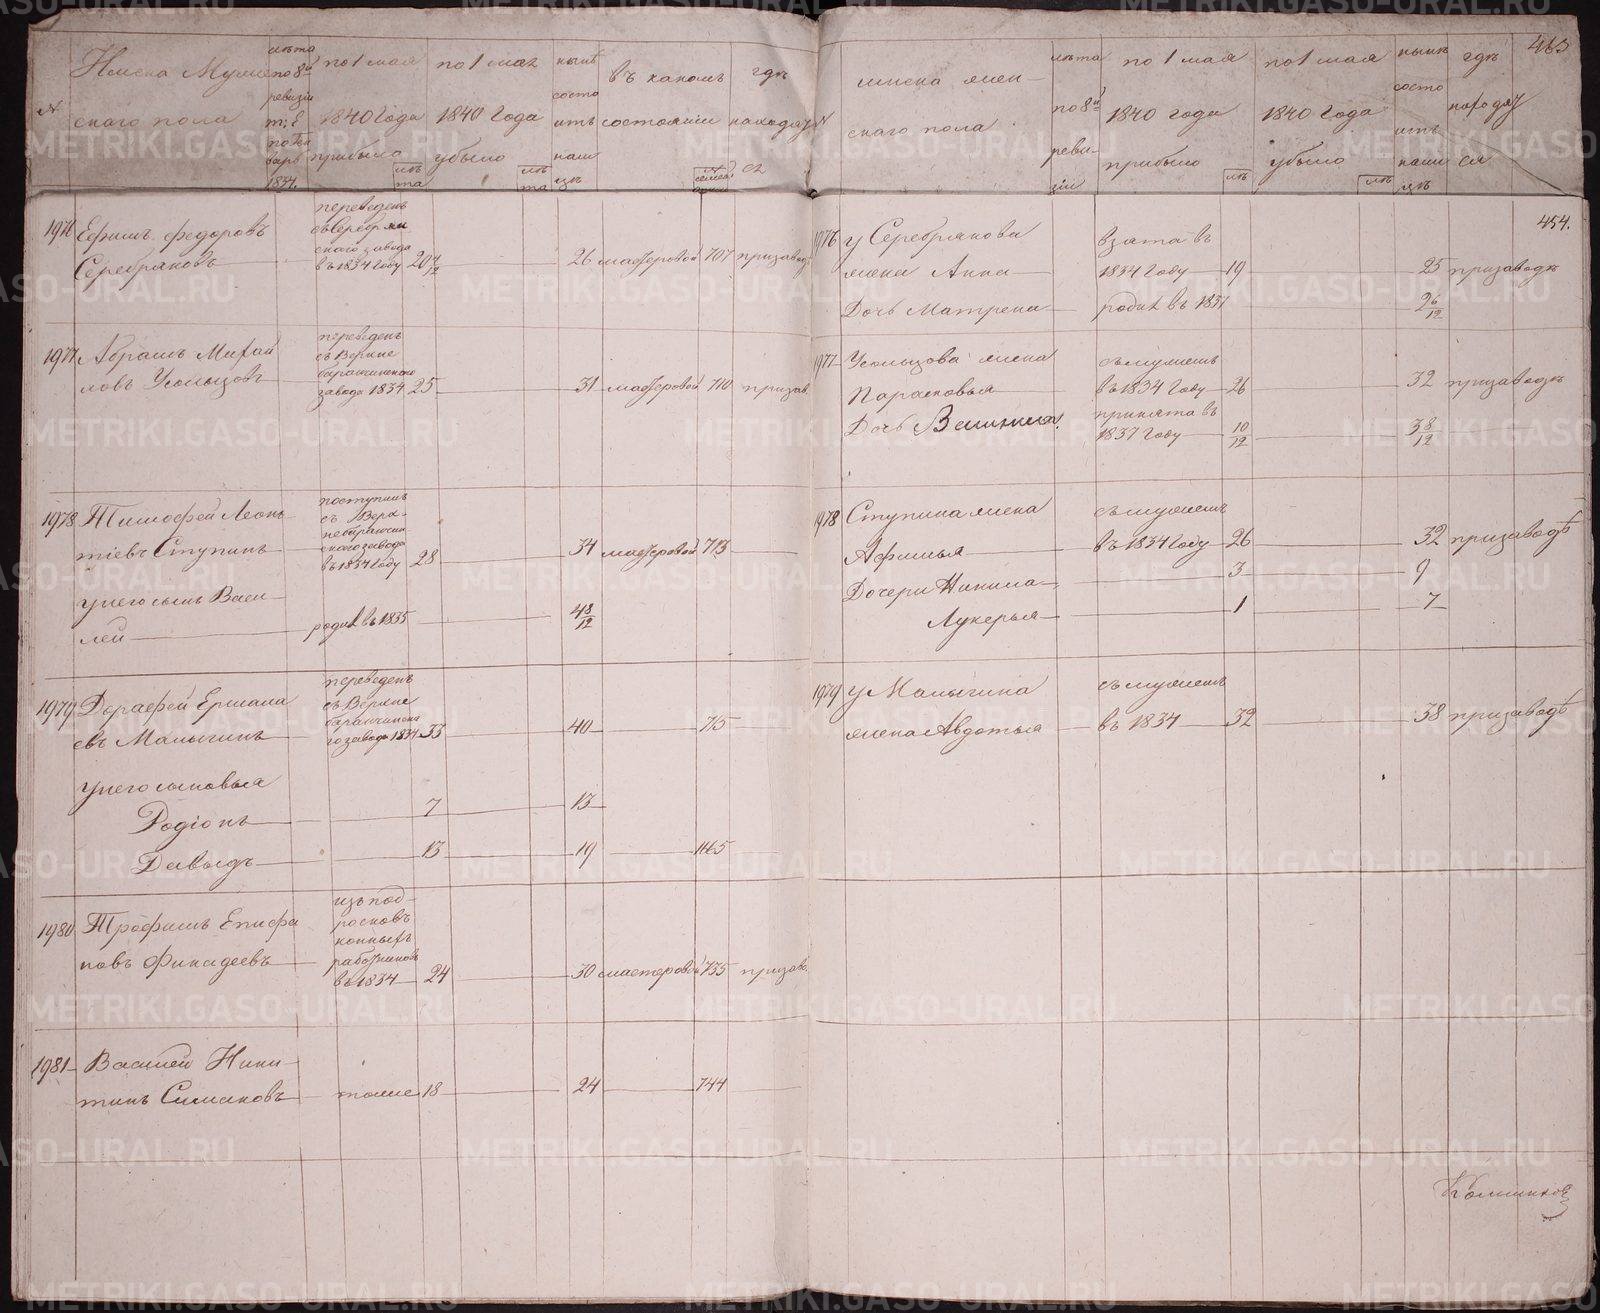 №
Имена Мужескаго пола
лѣта по 8й ревизіи т: е по Генварь 1834.
по 1 мая 1840 года прибыло
лѣта
по 1 мая 1840 года убыло
лѣта
нынѣ состоитъ налицѣ
въ какомъ состояніи
№ семейства
гдѣ находятся
1976 Ефимъ Федоровъ
Серебряковъ
переведенъ
съ Серебрян
скаго завода
въ 1834 году 20 4/12 26 мастеровой 707 призавод
1977 Абрамъ Михай
ловъ Усольцовъ
переведенъ
съ Верхне
баранчинскаго
завода 1834 25 31 мастеровой 710 призав.
1978 Тимофей Леонь
тіевъ Ступинъ
поступилъ
съ Верх
небаранчин
скаго завода
въ 1834 году 28 34 мастеровой 713
у него сынъ Васи
лей родил въ 1835 4 8/12
1979 Дорафей Ермила
евъ Малыгинъ
переведенъ
съ Верхне
баранчинска
го завода 1834 33 40 715
у него сыновья
Родіонъ 7 13
Давыдъ 13 19 1165
1980 Трофимъ Епифа
новъ Финадеевъ
изъ под
росковъ
конныхъ
работников
въ 1834 24 30 мастеровой 735 призаво.
1981 Василей Ники
тинъ Симановъ тоже 18 24 744
463
№
имена жен
скаго пола
лѣта по 8й ревизіи
по 1 мая 1840 года прибыло
лѣ
по 1 мая 1840 года убыло
лѣ
нынѣ состоитъ налицѣ
гдѣ находятся
454.
1976 у Серебрякова
жена Анна
взята въ
1834 году 19 25 призаводѣ
Дочь Матрена родил въ 1837 2 6/12
1977 Усольцова жена
Парасковья
съ мужемъ
въ 1834 году 26 32 призаводѣ
Дочь
принята въ
1837 году 10/12 3 8/12
1978 Ступина жена
Афимья
съ мужемъ
въ 1834 году 26 32 призаводѣ
Дочери 3 9
Лукерья 1 7
1979 у Малыгина
жена Авдотья
съ мужемъ
въ 1834 32 38 призаводѣ
METRIKI.GASO-URAL.RU